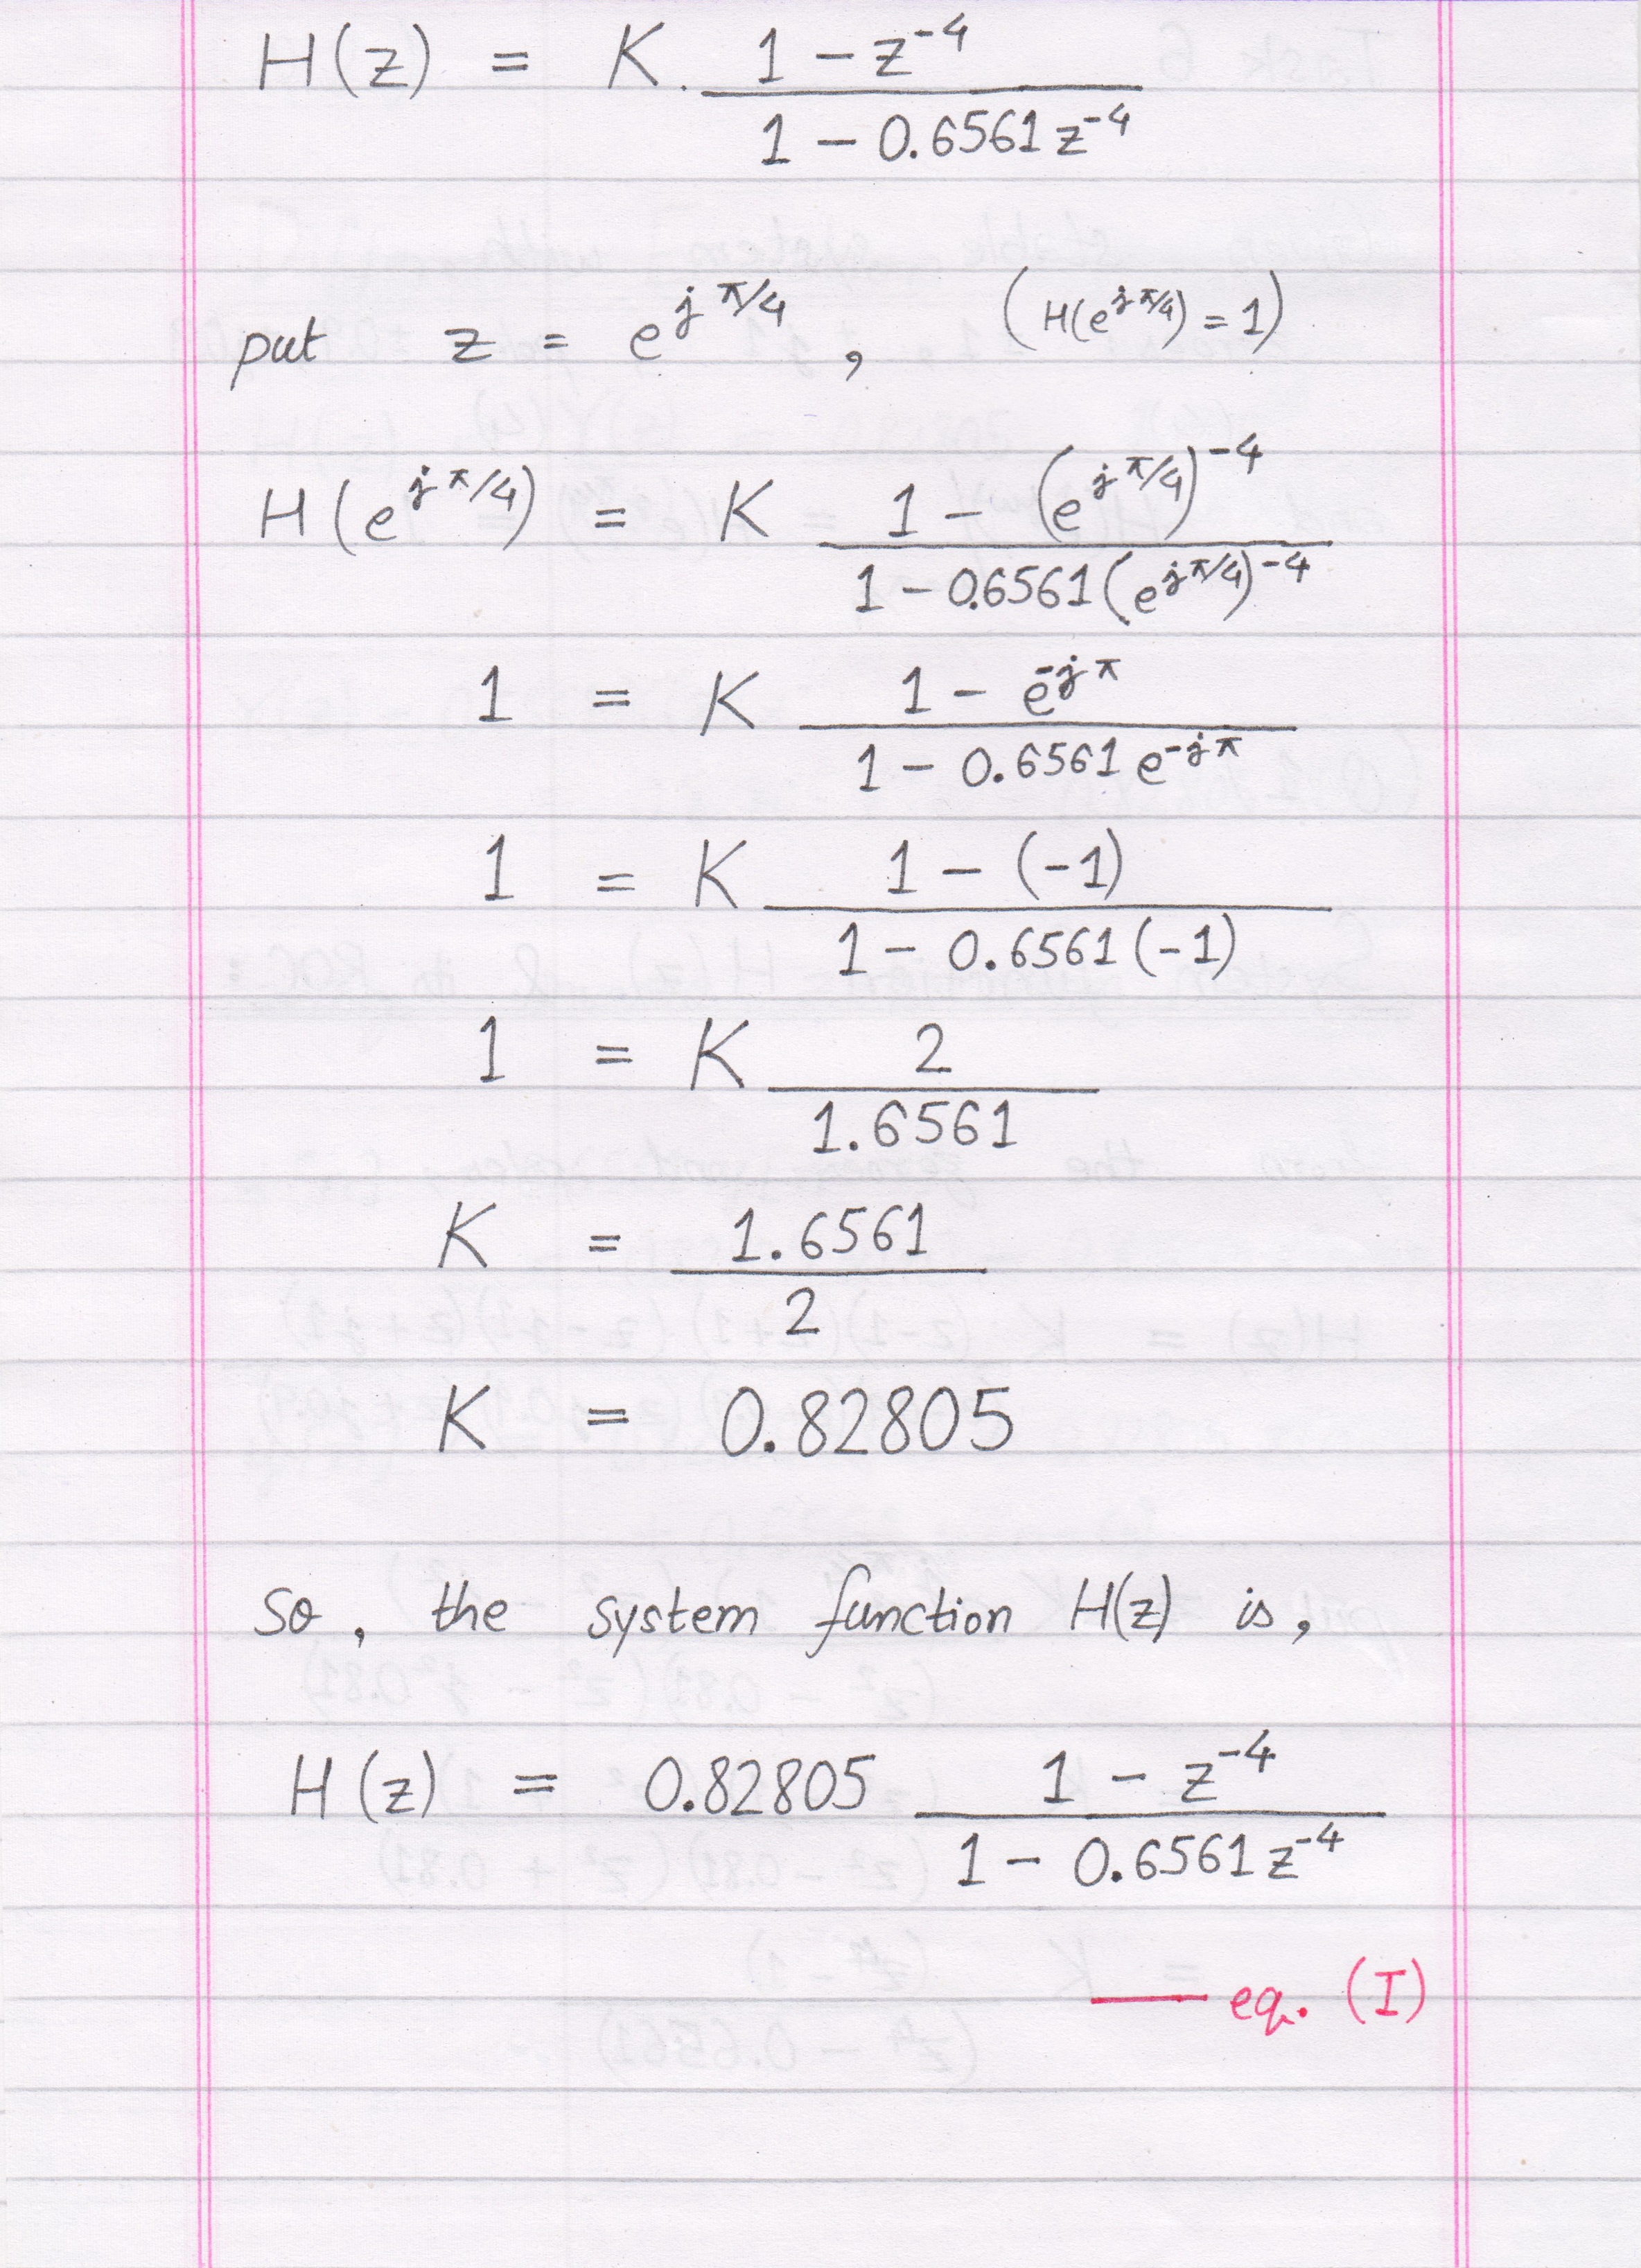 H(z) = K. (1 - z^-4) / (1 - 0.6561 z^-4)
put z = e^(j π/4) , (H(e^(j π/4)) = 1)
H(e^(j π/4)) = K (1 - (e^(j π/4))^-4) / (1 - 0.6561 (e^(j π/4))^-4)
1 = K (1 - e^(-j π)) / (1 - 0.6561 e^(-j π))
1 = K (1 - (-1)) / (1 - 0.6561 (-1))
1 = K 2 / 1.6561
K = 1.6561 / 2
K = 0.82805
So, the system function H(z) is,
H(z) = 0.82805 (1 - z^-4) / (1 - 0.6561 z^-4)
— eq. (I)